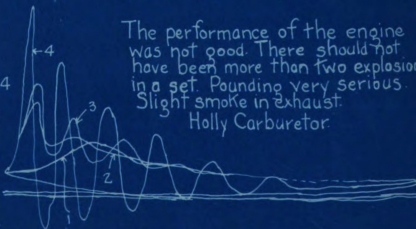 The performance of the engine
was not good. There should not
have been more than two explosion
in a set. Pounding very serious.
Slight smoke in exhaust.
Holly Carburetor.
4
4
3
2
1